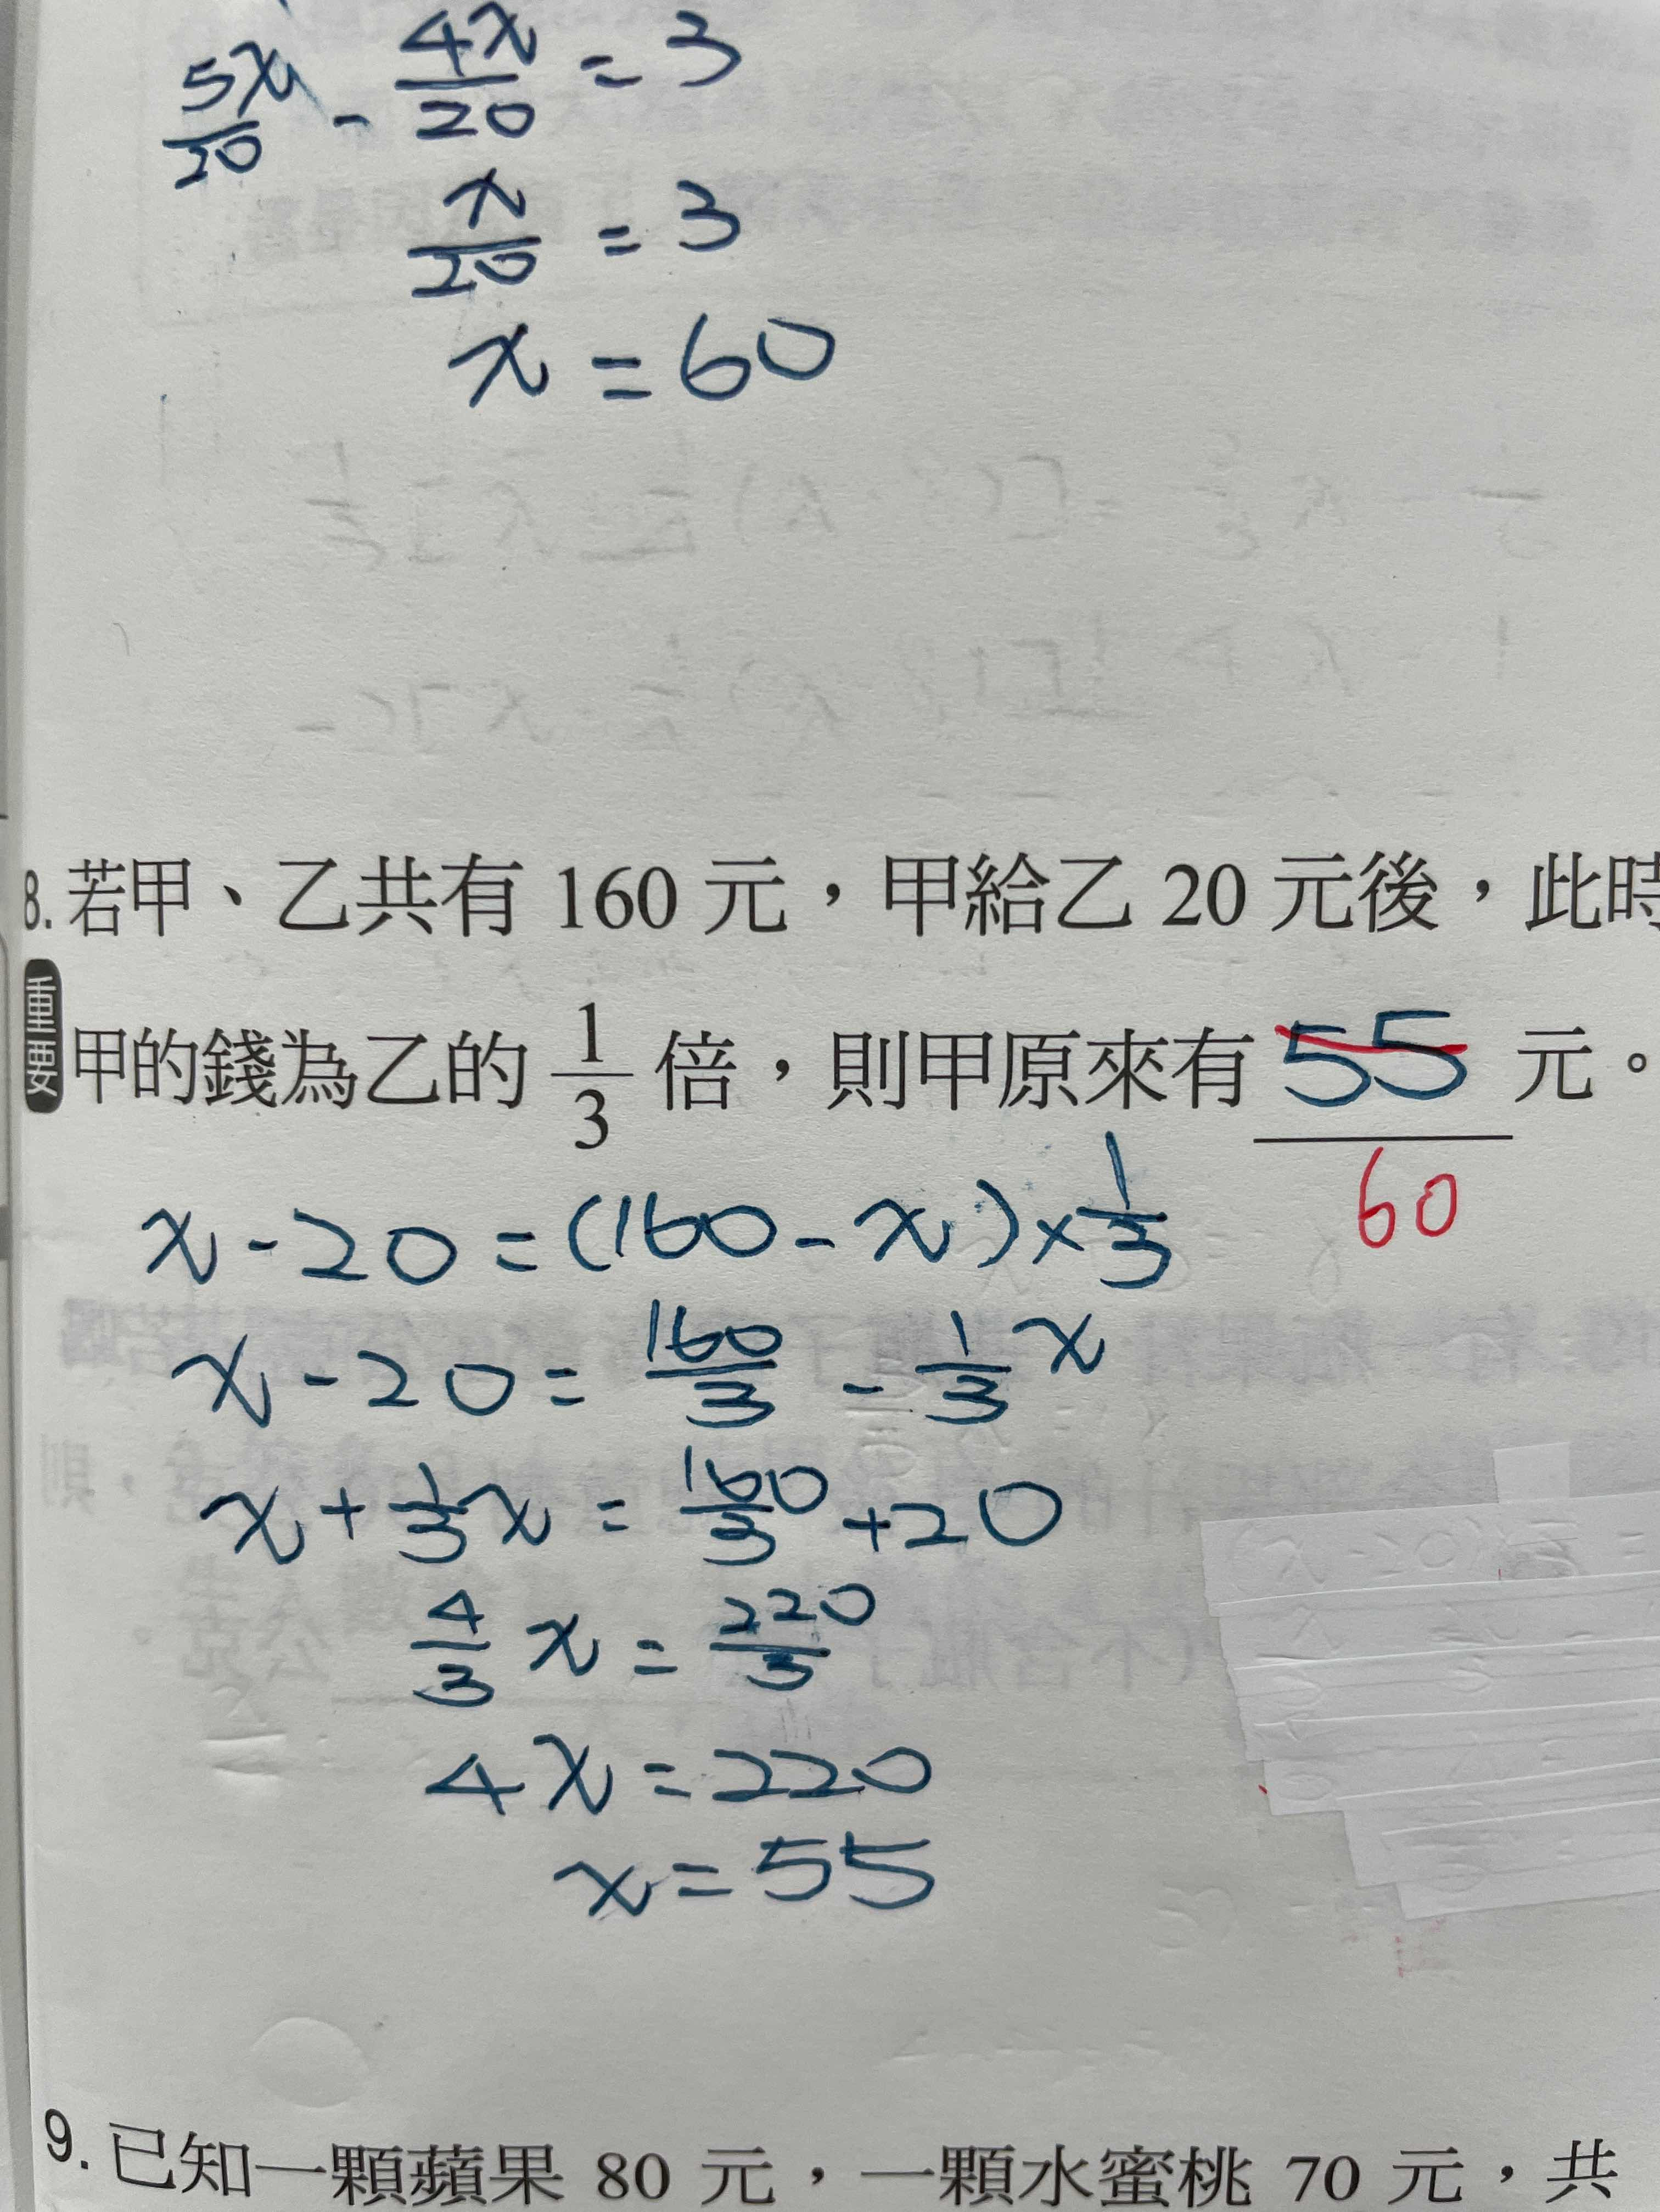 5x/20 - 4x/20 = 3
x/20 = 3
x = 60
8. 若甲、乙共有 160 元，甲給乙 20 元後，此時
重要
甲的錢為乙的 1/3 倍，則甲原來有 55 元。
60
x - 20 = (160 - x) × 1/3
x - 20 = 160/3 - 1/3 x
x + 1/3 x = 160/3 + 20
4/3 x = 220/3
4x = 220
x = 55
9. 已知一顆蘋果 80 元，一顆水蜜桃 70 元，共